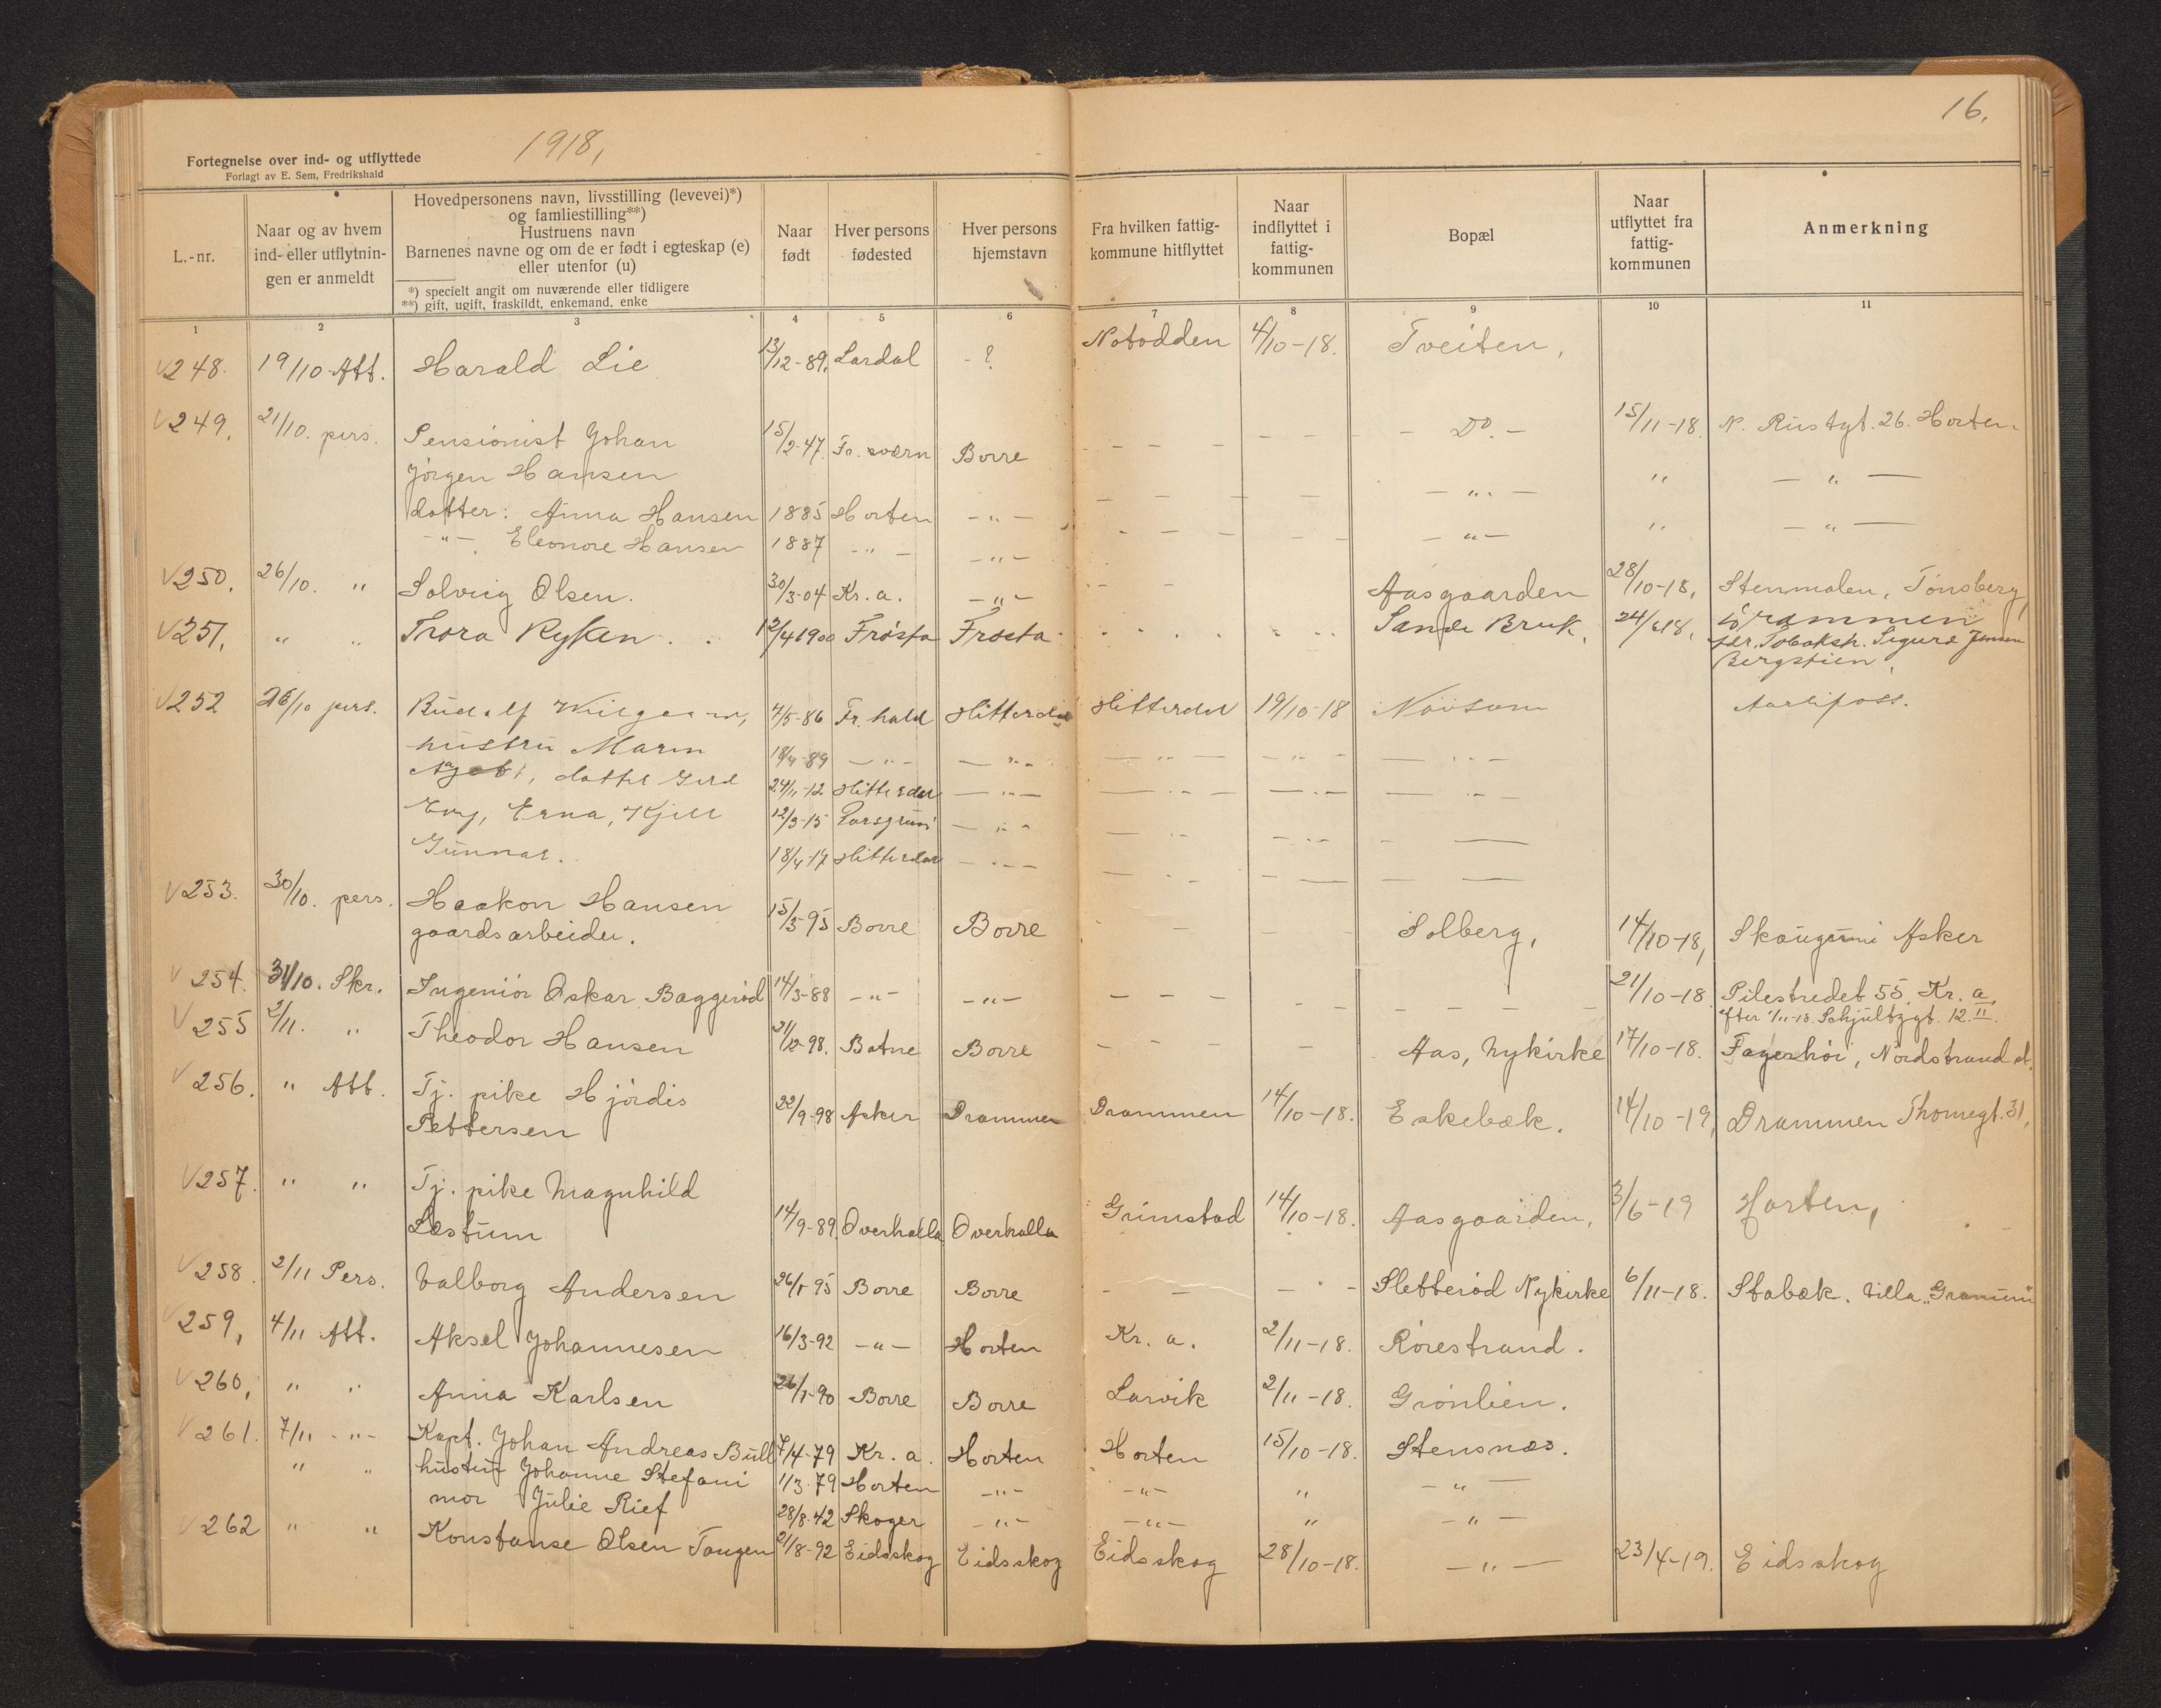 16.
1918,
Fortegnelse over ind- og utflyttede
Forlagt av E. Sem, Fredrikshald
L.-nr.
Naar og av hvem ind- eller utflytnin- gen er anmeldt
Hovedpersonens navn, livsstilling (levevei)*)
og famliestilling**)
Hustruens navn
Barnenes navne og om de er født i egteskap (e)
eller utenfor (u)
*) specielt angit om nuværende eller tidligere
**) gift, ugift, fraskildt, enkemand, enke
Naar født
Hver persons fødested
Hver persons hjemstavn
Fra hvilken fattig- kommune hitflyttet
Naar indflyttet i fattig- kommunen
Bopæl
Naar utflyttet fra fattig- kommunen
Anmerkning
1 2 3 4 5 6 7 8 9 10 11
V 248. 19/10 Att. Harald Lie 13/12-89. Lardal - ? Notodden 4/10-18. Tveiten,
V 249. 21/10. pers. Pensionist Johan 15/2-47. Fr.værn Borre - - - - Do. - 15/11-18. N. Rustgt. 26. Horten.
Jörgen Hansen - - - - - " - " - " -
datter: Anna Hansen 1885 Horten - " - - - - - - " - " - " -
- " - Eleonore Hansen 1887 - " - - " -
V 250. 26/10. " Solveig Olsen. 30/3-04 Kr. a. - " - - - Aasgaarden 28/10-18, Stenmalen, Tønsberg,
V 251, " " Thora Ryken. 12/4 1900 Frösta Frosta Sande Bruk. 24/6 18, Drammen
adr. Tobaksh. Sigurd Jensen
Bergstien,
V 252 26/10 pers. Rudolf 7/5-86 Fr. hald Hitterdal Hitterdal 19/10-18 Nöisom Aarlifoss.
hustru Marm 18/4-89 - " - - " - - " - - " - - " -
datter Gerd 24/11-12 Hitterdal - " - - " - - " - - " -
Erna, Kjell 12/3-15 Porsgrund - " -
Gunnar. 18/4-17 Hitterdal - " -
V 253. 30/10. pers. Haakon Hansen 15/3-95 Borre Borre - - - Solberg, 14/10-18, Asker
gaardsarbeider.
V 254. 31/10. Skr. Ingeniör Oskar Baggeröd 14/3-88 - " - - " - - - - - - 21/10-18 Pilestredet 55, Kr. a.
efter 1/11-18 Schjultzgt. 12 II.
V 255 2/11. " Theodor Hansen 21/12-98. Botne Borre - - - - Aas, Nykirke 17/10-18. Fagerhöi, Nordstrand st.
V 256. " Att. Tj. pike Hjördis
Pettersen 22/9-98 Asker Drammen Drammen 14/10-18. Eskebæk. 14/10-19, Drammen Thomegt. 31,
V 257. " " Tj. pike Magnhild
Læstum 14/9-89. Overhalla Overhalla Grimstad 14/10-18. Aasgaarden, 3/6-19 Horten,
V 258. 2/11 Pers. Valborg Andersen 26/1-95 Borre Borre - - - - Sletteröd Nykirke 6/11-18. Stabæk. Villa "Granum"
V 259, 4/11 Att. Aksel Johannesen 16/3-92 - " - Horten Kr. a. 2/11-18. Rörestrand.
V 260, " " Anna Karlsen 26/1-90 Borre Borre Larvik 2/11-18. Grönlien.
V 261. 7/11 - " - Kapt. Johan Andreas Bull 7/4-79 Kr. a. Horten Horten 15/10-18. Stensnæs.
" " hustru Johanne Stefani 1/3-79 Horten - " - - " - " - " -
mor Julie Rief 28/8-42 Skoger - " - - " - " - " -
V 262 " " Konstanse Olsen Tangen 21/8-92 Eidsskog Eidsskog Eidsskog 28/10-18. - " - 23/4-19. Eidsskog